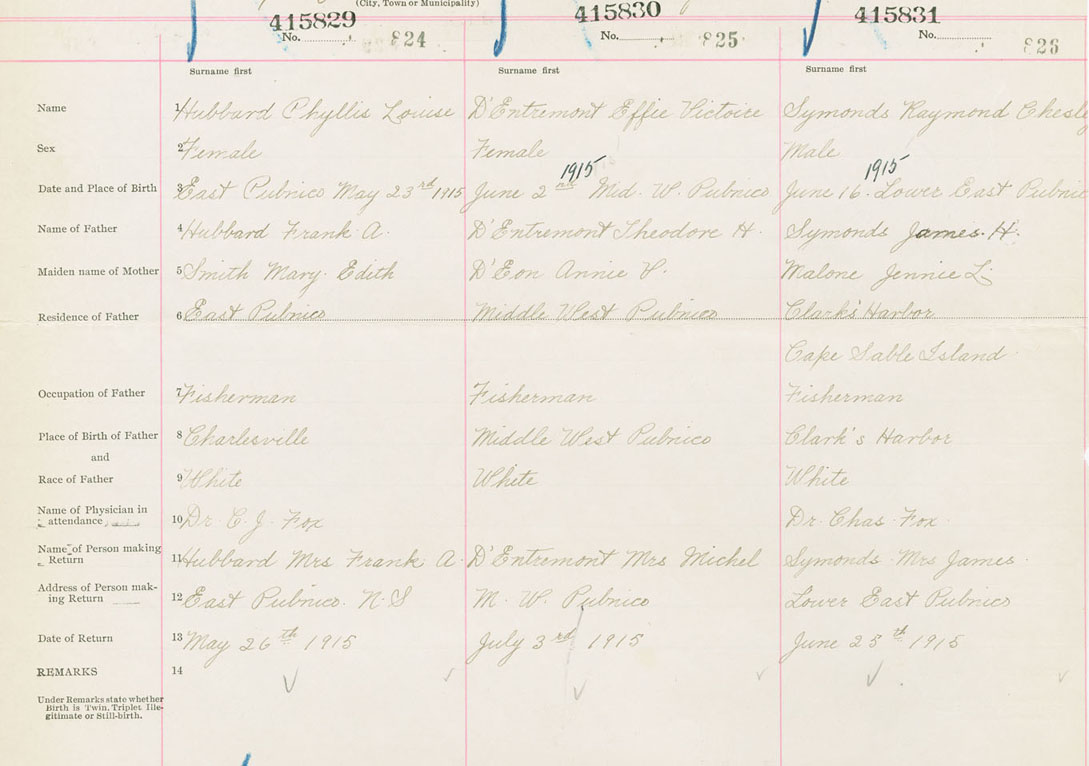 (City, Town or Municipality)
415829 415830 415831
No. 824 No. 825 No. 826
Surname first Surname first Surname first
Name 1 Hubbard Phyllis Louise D'Entremont Effie Victoire Symonds Raymond Chesle
Sex 2 Female Female Male
1915 1915
Date and Place of Birth 3 East Pubnico May 23rd 1915 June 2nd Mid. W. Pubnico June 16. Lower East Pubnico
Name of Father 4 Hubbard Frank A. D'Entremont Theodore H. Symonds James. H.
Maiden name of Mother 5 Smith Mary Edith D'Eon Annie V. Malone Jennie L.
Residence of Father 6 East Pubnico Middle West Pubnico Clark's Harbor
Cape Sable Island
Occupation of Father 7 Fisherman Fisherman Fisherman
Place of Birth of Father 8 Charlesville Middle West Pubnico Clark's Harbor
and
Race of Father 9 White White White
Name of Physician in
attendance 10 Dr. C. J. Fox Dr. Chas. Fox
Name of Person making
Return 11 Hubbard Mrs Frank A. D'Entremont Mrs Michel Symonds Mrs James
Address of Person mak-
ing Return 12 East Pubnico. N.S M. W. Pubnico Lower East Pubnico
Date of Return 13 May 26th 1915 July 3rd 1915 June 25th 1915
REMARKS 14
Under Remarks state whether
Birth is Twin, Triplet Ille-
gitimate or Still-birth.